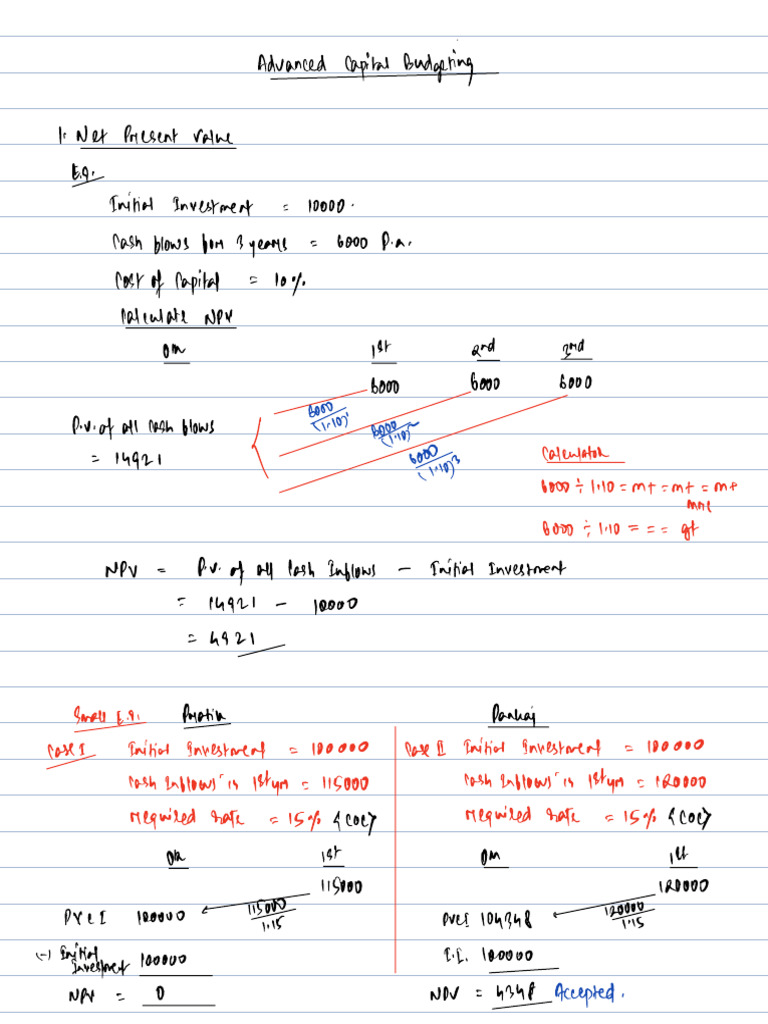 Advanced Capital Budgeting
1. Net Present Value
E.g.
Initial Investment = 10000.
Cash flows for 3 years = 6000 P.a.
Cost of Capital = 10%
Calculate NPV
On 1st 2nd 3rd
6000 6000 6000
6000/(1.10)¹
P.v. of all cash flows
6000/(1.10)²
= 14921
6000/(1.10)³
Calculator
6000 ÷ 1.10 = m+ = m+ = m+
mrc
6000 ÷ 1.10 = = = gt
NPV = P.v. of all Cash Inflows - Initial Investment
= 14921 - 10000
= 4921
Small E.g. Pratik Pankaj
Case I Initial Investment = 100000
Cash Inflows in 1st yr = 115000
Required rate = 15% {COC}
On 1st
115000
PVCI 100000 115000/1.15
(-) Initial Investment 100000
NPV = 0
Case II Initial Investment = 100000
Cash Inflows in 1st yr = 120000
Required rate = 15% {COC}
On 1st
120000
PVCI 104348 120000/1.15
I.I. 100000
NPV = 4348 Accepted.